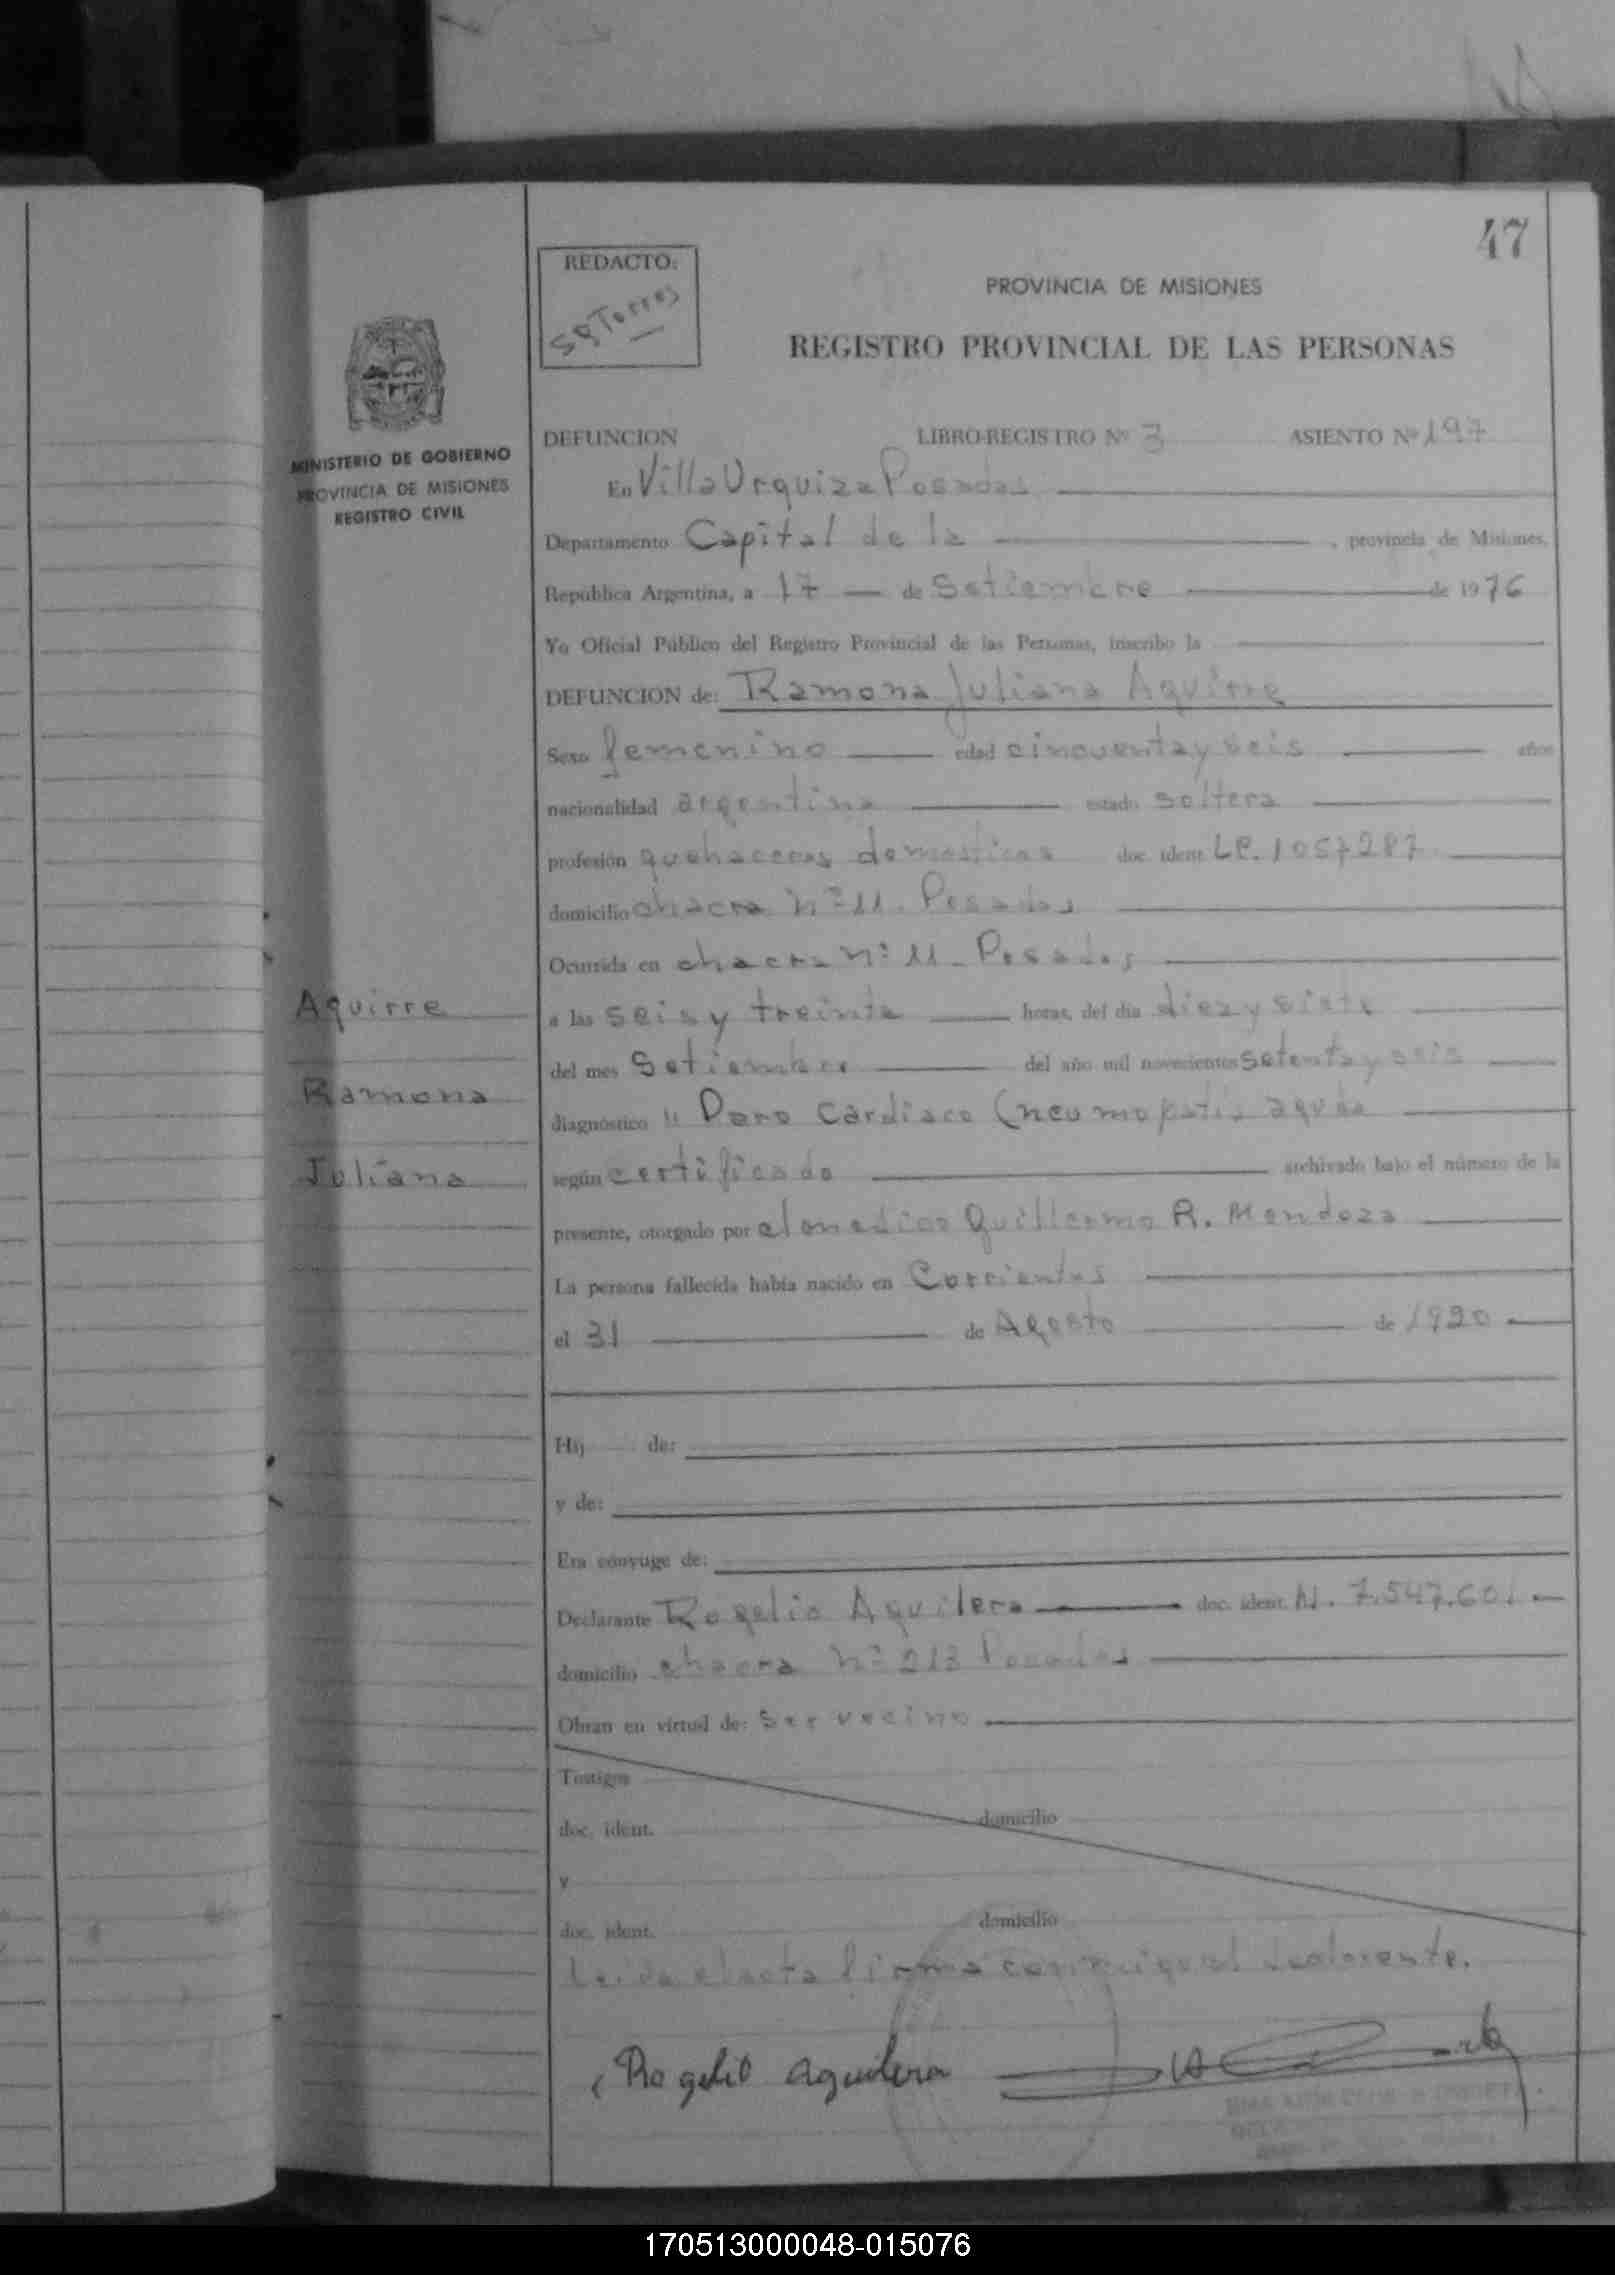 47
REDACTO:
SG Torres
PROVINCIA DE MISIONES
REGISTRO PROVINCIAL DE LAS PERSONAS
MINISTERIO DE GOBIERNO
PROVINCIA DE MISIONES
REGISTRO CIVIL
DEFUNCION LIBRO-REGISTRO Nº 3 ASIENTO Nº 197
En Villa Urquiza Posadas
Departamento Capital de la , provincia de Misiones,
República Argentina, a 17 de Setiembre de 1976
Yo Oficial Público del Registro Provincial de las Personas, inscribo la
DEFUNCION de: Ramona Juliana Aguirre
Sexo femenino edad cincuenta y seis años
nacionalidad argentina estado soltera
profesión quehaceres domesticos doc. ident. LC. 1057287
domicilio chacra nº 11. Posadas
Ocurrida en chacra nº 11 - Posadas
Aguirre
Ramona
Juliana
a las seis y treinta horas, del día diez y siete
del mes Setiembre del año mil novecientos setenta y seis
diagnóstico " Paro Cardiaco (neumopatia aguda
según certificado archivado bajo el número de la
presente, otorgado por el medico Guillermo R. Mendoza
La persona fallecida había nacido en Corrientes
el 31 de Agosto de 1920
Hij de:
y de:
Era cónyuge de:
Declarante Rogelio Aguilera doc. ident. M. 7.547.601
domicilio chacra nº 213 Posadas
Obran en virtud de: ser vecino
Testigos
doc. ident. domicilio
y
doc. ident. domicilio
Leida el acta firma conmigo el declarente.
Rogelio Aguilera
170513000048-015076